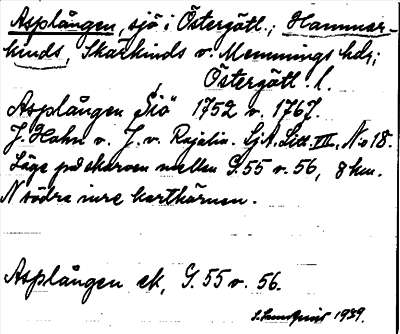 Asplången, sjö i Östergötl.; Hammar-
kinds, Skärkinds o. Memmings hdr;
Östergötl. l.
Asplången Siö 1752 o. 1767.
J. Hahn o. J. v. Rajalin. SjA. Litt. VII, N:o 18.
Läge på skarven mellan G. 55 o. 56, 8 km.
N södra inre karthörnen.
Asplången ek, G. 55 o. 56.
1939.